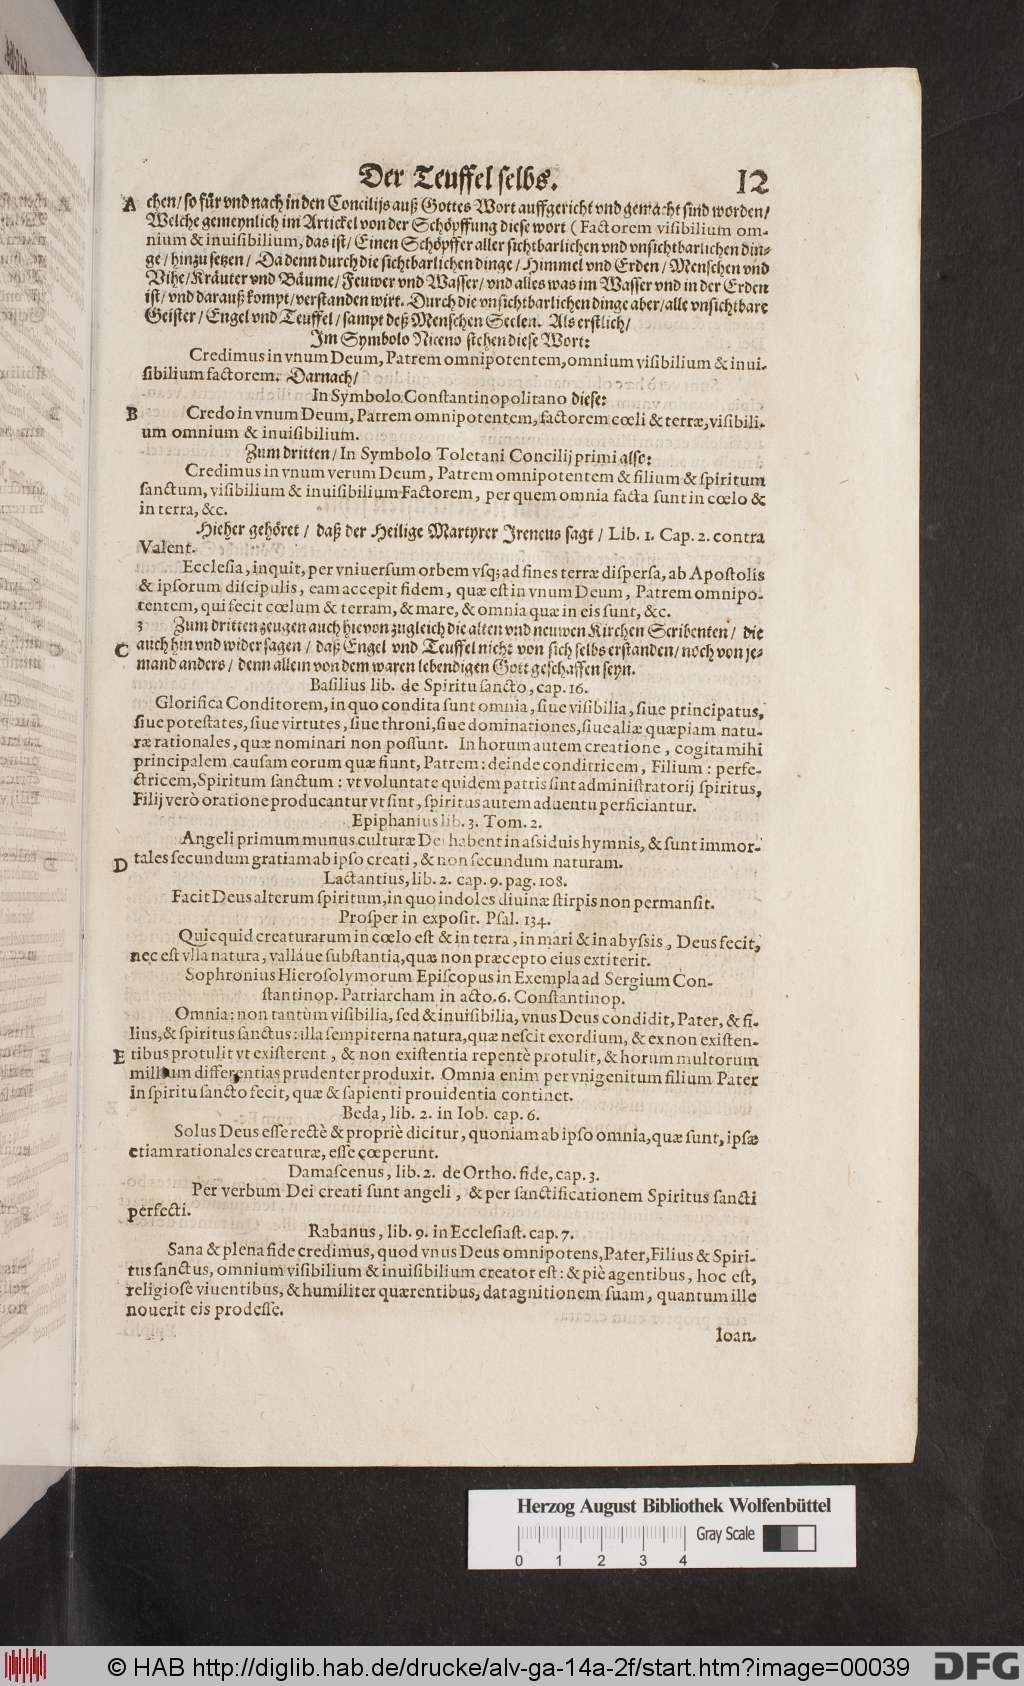 Der Teuffel selbs. 12
A chen/ so für vnd nach in den Concilijs auß Gottes Wort auffgericht vnd gemacht sind worden/
Welche gemeynlich im Artickel von der Schöpffung diese wort (Factorem visibilium om-
nium & inuisibilium, das ist/ Einen Schöpffer aller sichtbarlichen vnd vnsichtbarlichen din-
ge/ hinzu setzen/ Da denn durch die sichtbarlichen dinge/ Himmel vnd Erden/ Menschen vnd
Vihe/ Kräuter vnd Bäume/ Feuwer vnd Wasser/ vnd alles was im Wasser vnd in der Erden
ist/ vnd darauß kompt/ verstanden wirt. Durch die vnsichtbarlichen dinge aber/ alle vnsichtbare
Geister/ Engel vnd Teuffel/ sampt deß Menschen Seelen. Als erstlich/
Im Symbolo Niceno stehen diese Wort:
Credimus in vnum Deum, Patrem omnipotentem, omnium visibilium & inui-
sibilium factorem. Darnach/
In Symbolo Constantinopolitano diese:
B Credo in vnum Deum, Patrem omnipotentem, factorem cœli & terræ, visibili-
um omnium & inuisibilium.
Zum dritten/ In Symbolo Toletani Concilij primi also:
Credimus in vnum verum Deum, Patrem omnipotentem & filium & spiritum
sanctum, visibilium & inuisibilium Factorem, per quem omnia facta sunt in cœlo &
in terra, &c.
Hieher gehöret/ daß der Heilige Martyrer Ireneus sagt/ Lib. 1. Cap. 2. contra
Valent.
Ecclesia, inquit, per vniuersum orbem vsq; ad fines terræ dispersa, ab Apostolis
& ipsorum discipulis, eam accepit fidem, quæ est in vnum Deum, Patrem omnipo-
tentem, qui fecit cœlum & terram, & mare, & omnia quæ in eis sunt, &c.
3 Zum dritten zeugen auch hievon zugleich die alten vnd neuwen Kirchen Scribenten/ die
C auch hin vnd wider sagen/ daß Engel vnd Teuffel nicht von sich selbs erstanden/ noch von je-
mand anders/ denn allein von dem waren lebendigen Gott geschaffen seyn.
Basilius lib. de Spiritu sancto, cap. 16.
Glorifica Conditorem, in quo condita sunt omnia, siue visibilia, siue principatus,
siue potestates, siue virtutes, siue throni, siue dominationes, siue aliæ quæpiam natu-
ræ rationales, quæ nominari non possunt. In horum autem creatione, cogita mihi
principalem causam eorum quæ fiunt, Patrem: deinde conditricem, Filium: perfe-
ctricem, Spiritum sanctum: vt voluntate quidem patris sint administratorij spiritus,
Filij verò oratione producantur vt sint, spiritus autem aduentu perficiantur.
Epiphanius lib. 3. Tom. 2.
Angeli primum munus culturæ Dei habent in assiduis hymnis, & sunt immor-
D tales secundum gratiam ab ipso creati, & non secundum naturam.
Lactantius, lib. 2. cap. 9. pag. 108.
Facit Deus alterum spiritum, in quo indoles diuinæ stirpis non permansit.
Prosper in exposit. Psal. 134.
Quicquid creaturarum in cœlo est & in terra, in mari & in abyssis, Deus fecit,
nec est vlla natura, vlláue substantia, quæ non præcepto eius extiterit.
Sophronius Hierosolymorum Episcopus in Exempla ad Sergium Con-
stantinop. Patriarcham in acto. 6. Constantinop.
Omnia: non tantùm visibilia, sed & inuisibilia, vnus Deus condidit, Pater, & fi-
lius, & spiritus sanctus: illa sempiterna natura, quæ nescit exordium, & ex non existen-
E tibus protulit vt existerent, & non existentia repentè protulit, & horum multorum
millium differentias prudenter produxit. Omnia enim per vnigenitum filium Pater
in spiritu sancto fecit, quæ & sapienti prouidentia continet.
Beda, lib. 2. in Iob. cap. 6.
Solus Deus esse rectè & propriè dicitur, quoniam ab ipso omnia, quæ sunt, ipsæ
etiam rationales creaturæ, esse cœperunt.
Damascenus, lib. 2. de Ortho. fide, cap. 3.
Per verbum Dei creati sunt angeli, & per sanctificationem Spiritus sancti
perfecti.
Rabanus, lib. 9. in Ecclesiast. cap. 7.
Sana & plena fide credimus, quod vnus Deus omnipotens, Pater, Filius & Spiri-
tus sanctus, omnium visibilium & inuisibilium creator est: & piè agentibus, hoc est,
religiosè viuentibus, & humiliter quærentibus, dat agnitionem suam, quantum ille
nouerit eis prodesse.
Ioan.
Herzog August Bibliothek Wolfenbüttel
0 1 2 3 4 Gray Scale
© HAB http://diglib.hab.de/drucke/alv-ga-14a-2f/start.htm?image=00039 DFG